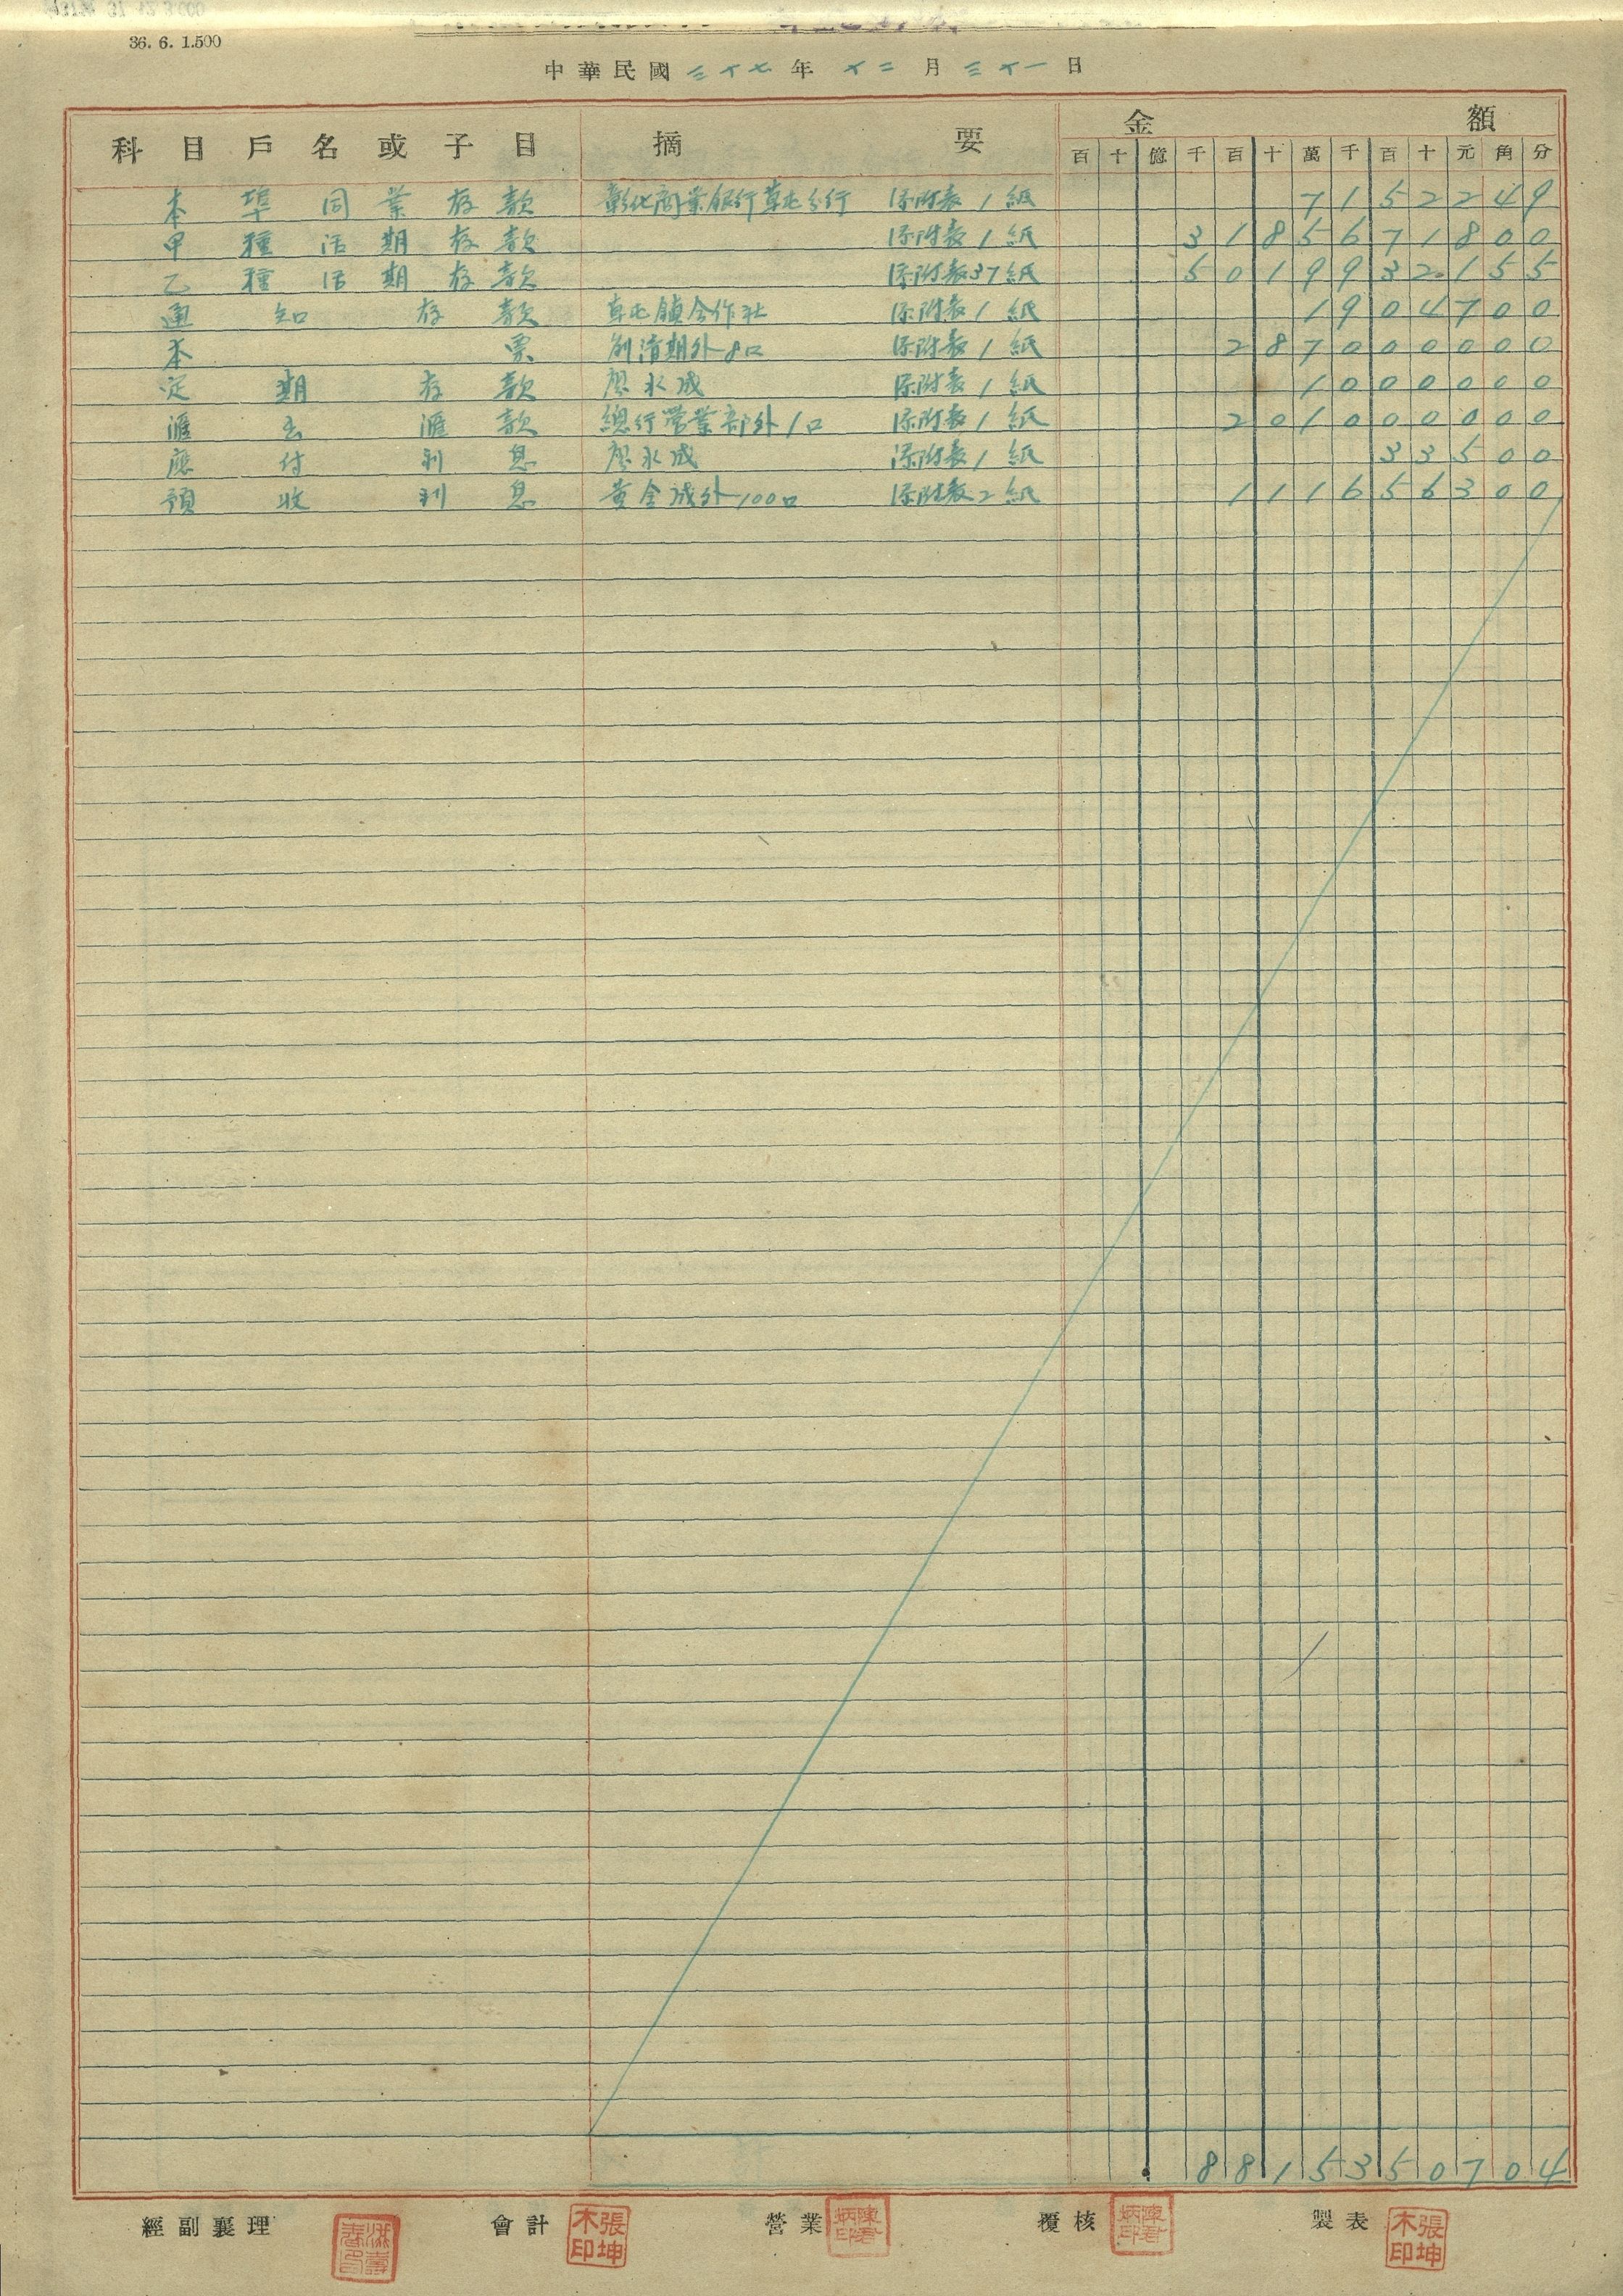 36. 6. 1.500
中華民國三十七年十二月三十一日
科目戶名或子目 摘要 金額
百 十 億 千 百 十 萬 千 百 十 元 角 分
本埠同業存款 彰化商業銀行草屯分行 添附表1紙 7152249
甲種活期存款 添附表1紙 3185671800
乙種活期存款 添附表37紙 5019932155
通知存款 草屯鎮合作社 添附表1紙 1904700
本票 劉清期外8口 添附表1紙 287000000
定期存款 廖永成 添附表1紙 1000000
滙出滙款 總行營業部外1口 添附表1紙 201000000
應付利息 廖永成 添附表1紙 33500
預收利息 黃金成外100口 添附表2紙 111656300
8815350704
經副襄理 會計 張坤木印 營業 覆核 製表 張坤木印